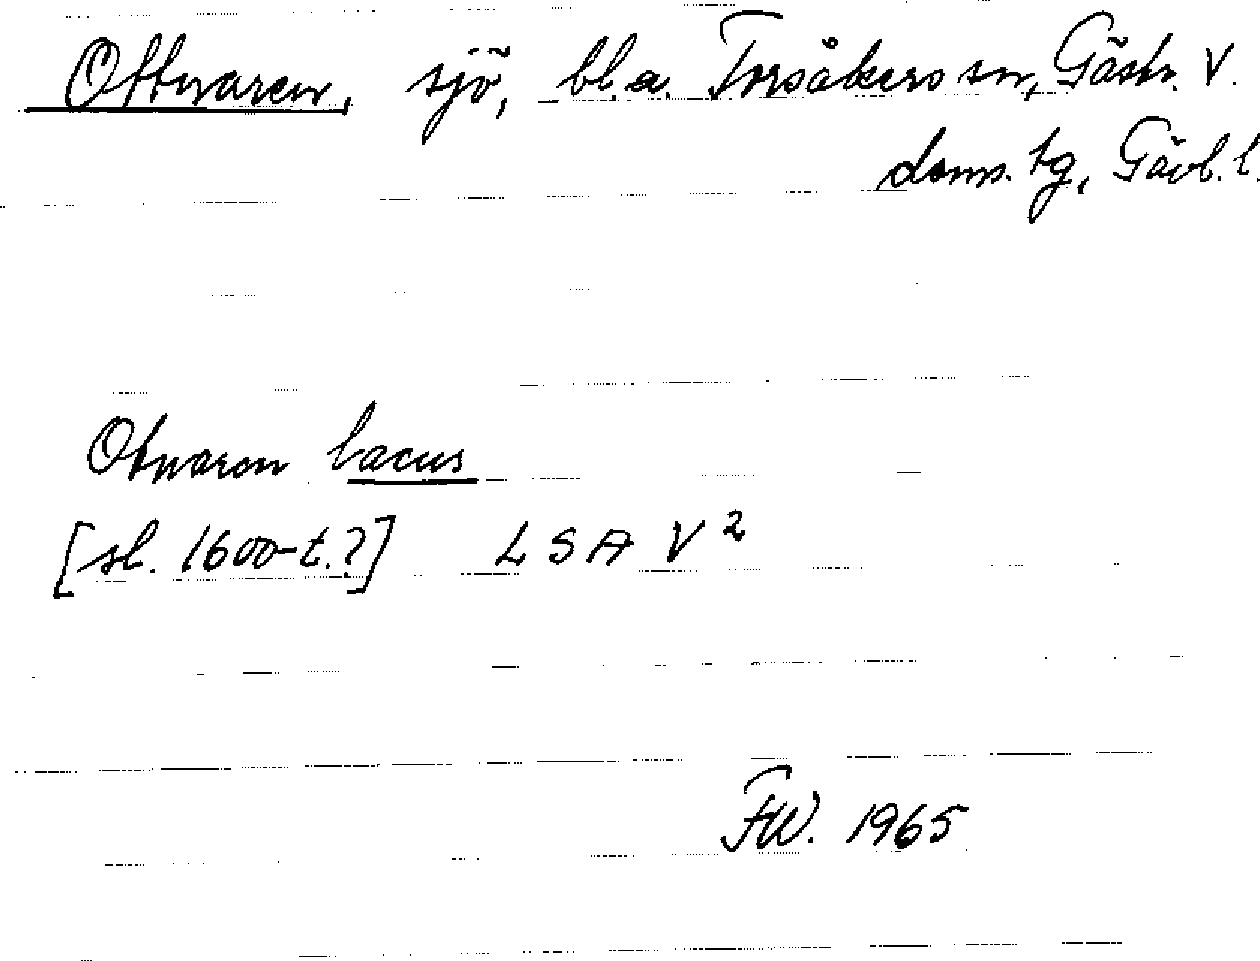 Ottnaren, sjö, bl.a. Torsåkers sn, Gästr. V.
doms. tg, Gävl. l.
Otnaron lacus
[sl. 1600-t.?] LSA V²
FW. 1965